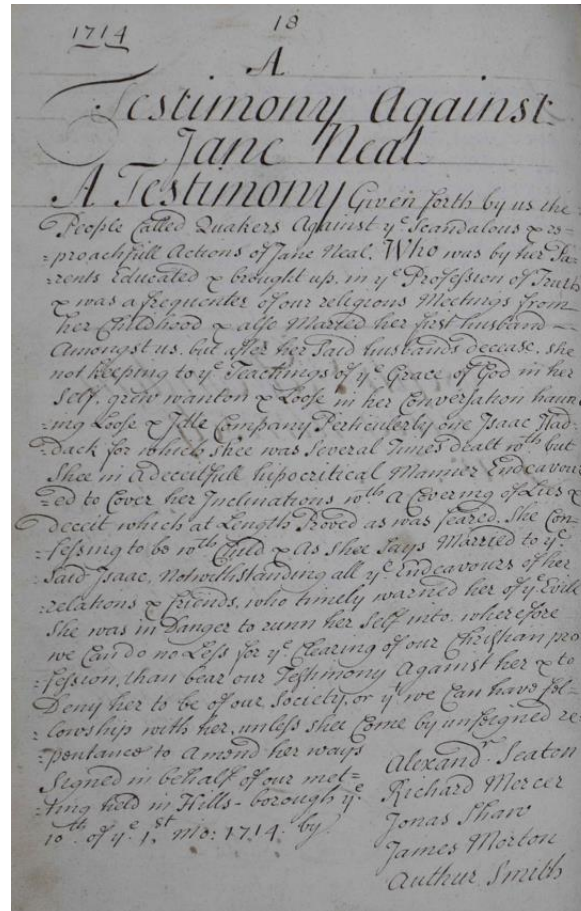 1714
18
A
Testimony Against
Jane Neal
A Testimony Given forth by us the
People Called Quakers Against yᵉ Scandalous & re-
=proachfull Actions of Jane Neal. Who was by her Pa-
=rents Educated & brought up, in yᵉ Profession of Truth
& was a frequenter of our religious Meetings from
her Childhood & also Married her first husband —
Amongst us, but after her Said husbands decease, she
not keeping to yᵉ Teachings of yᵉ Grace of God in her
Self, grew wanton & Loose in her Conversation haun-
ing Loose & Idle Company Perticulerly one Isaac Had-
dack for which shee was Several times dealt wᵗʰ but
Shee in A deceitfull hipocritical Manner Endeavour
=ed to Cover her Inclinations wᵗʰ a Covering of Lies &
deceit which at Length Proved as was feared, She Con-
=fessing to be wᵗʰ Child & As shee Says Married to yᵉ
Said Isaac, Notwithstanding all yᵉ Endeavours of her
=relations & friends, who timely warned her of yᵉ Evile
She was in Danger to runn her Self into, wherefore
we Can do no Less for yᵉ Clearing of our Christian pro
=fession, than bear our Testimony Against her & to
Deny her to be of our Society, or yᵗ we Can have fel-
=lowship with her, unless shee Come by unfeigned re-
=pentance to Amond her ways
Signed in behalf of our met-
=ting held in Hills-borough yᵉ
10ᵗʰ of yᵉ 1ˢᵗ Mo: 1714: by
Alexandʳ Seaton
Richard Mercer
Jonas Shaw
James Morton
Authur Smith